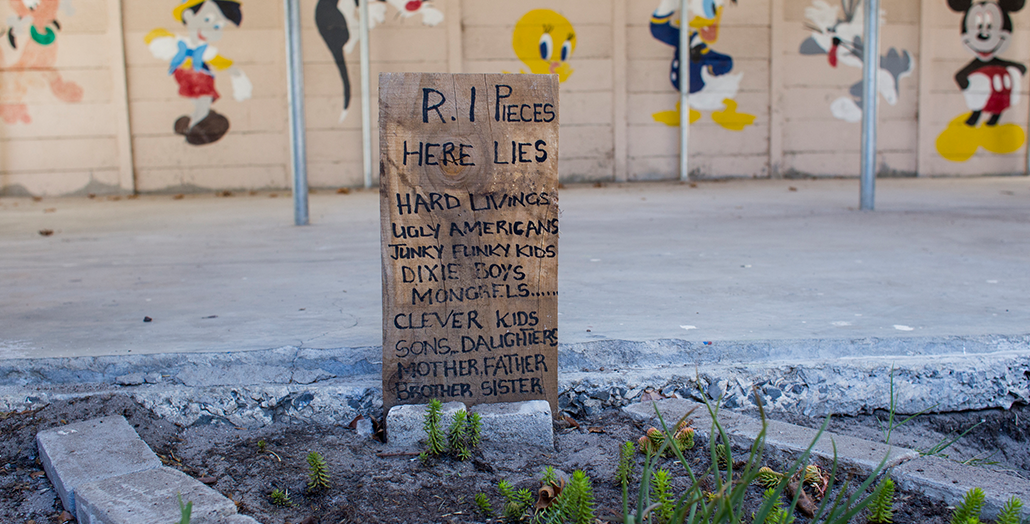 R.I PIECES
HERE LIES
HARD LIVINGS
UGLY AMERICANS
JUNKY FUNKY KIDS
DIXIE BOYS
MONGRELS......
CLEVER KIDS
SONS, DAUGHTERS
MOTHER, FATHER
BROTHER, SISTER